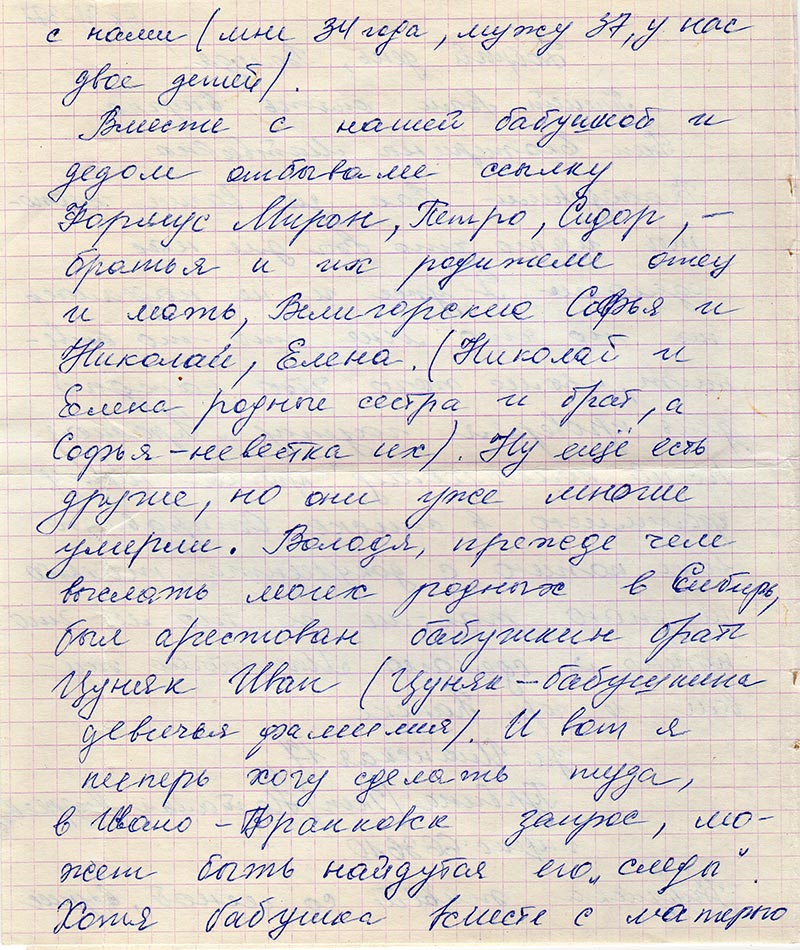 с нами (мне 34 года, мужу 37, у нас
двое детей).
Вместе с нашей бабушкой и
дедом отбывали ссылку
Мирон, Петро, Сидор, –
братья и их родители отец
и мать, Велигорские Софья и
Николай, Елена. (Николай и
Елена родные сестра и брат, а
Софья – невестка их). Ну ещё есть
другие, но они уже многие
умерли. Володя, прежде чем
выслать моих родных в Сибирь,
был арестован бабушкин брат
Цуняк Иван (Цуняк – бабушкина
девичья фамилия). И вот я
теперь хочу сделать туда,
в Ивано-Франковск запрос, мо-
жет быть найдутся его „следы“.
Хотя бабушка вместе с матерью